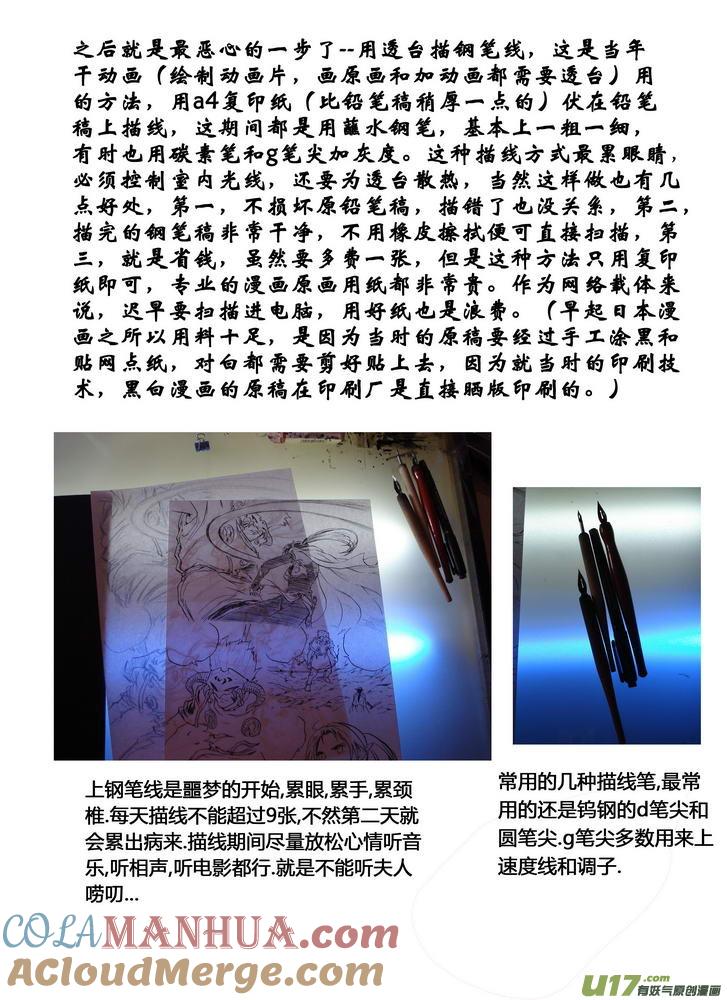 之后就是最恶心的一步了--用透台描钢笔线，这是当年
干动画（绘制动画片，画原画和加动画都需要透台）用
的方法，用a4复印纸（比铅笔稿稍厚一点的）伏在铅笔
稿上描线，这期间都是用蘸水钢笔，基本上一粗一细，
有时也用碳素笔和g笔尖加灰度。这种描线方式最累眼睛，
必须控制室内光线，还要为透台散热，当然这样做也有几
点好处，第一，不损坏原铅笔稿，描错了也没关系，第二，
描完的钢笔稿非常干净，不用橡皮擦拭便可直接扫描，第
三，就是省钱，虽然要多费一张，但是这种方法只用复印
纸即可，专业的漫画原画用纸都非常贵。作为网络载体来
说，迟早要扫描进电脑，用好纸也是浪费。（早起日本漫
画之所以用料十足，是因为当时的原稿要经过手工涂黑和
贴网点纸，对白都需要剪好贴上去，因为就当时的印刷技
术，黑白漫画的原稿在印刷厂是直接晒版印刷的。）
上钢笔线是噩梦的开始,累眼,累手,累颈
椎.每天描线不能超过9张,不然第二天就
会累出病来.描线期间尽量放松心情听音
乐,听相声,听电影都行.就是不能听夫人
唠叨...
常用的几种描线笔,最常
用的还是钨钢的d笔尖和
圆笔尖.g笔尖多数用来上
速度线和调子.
COLAMANHUA.com
ACloudMerge.com
U17.com
有妖气原创漫画